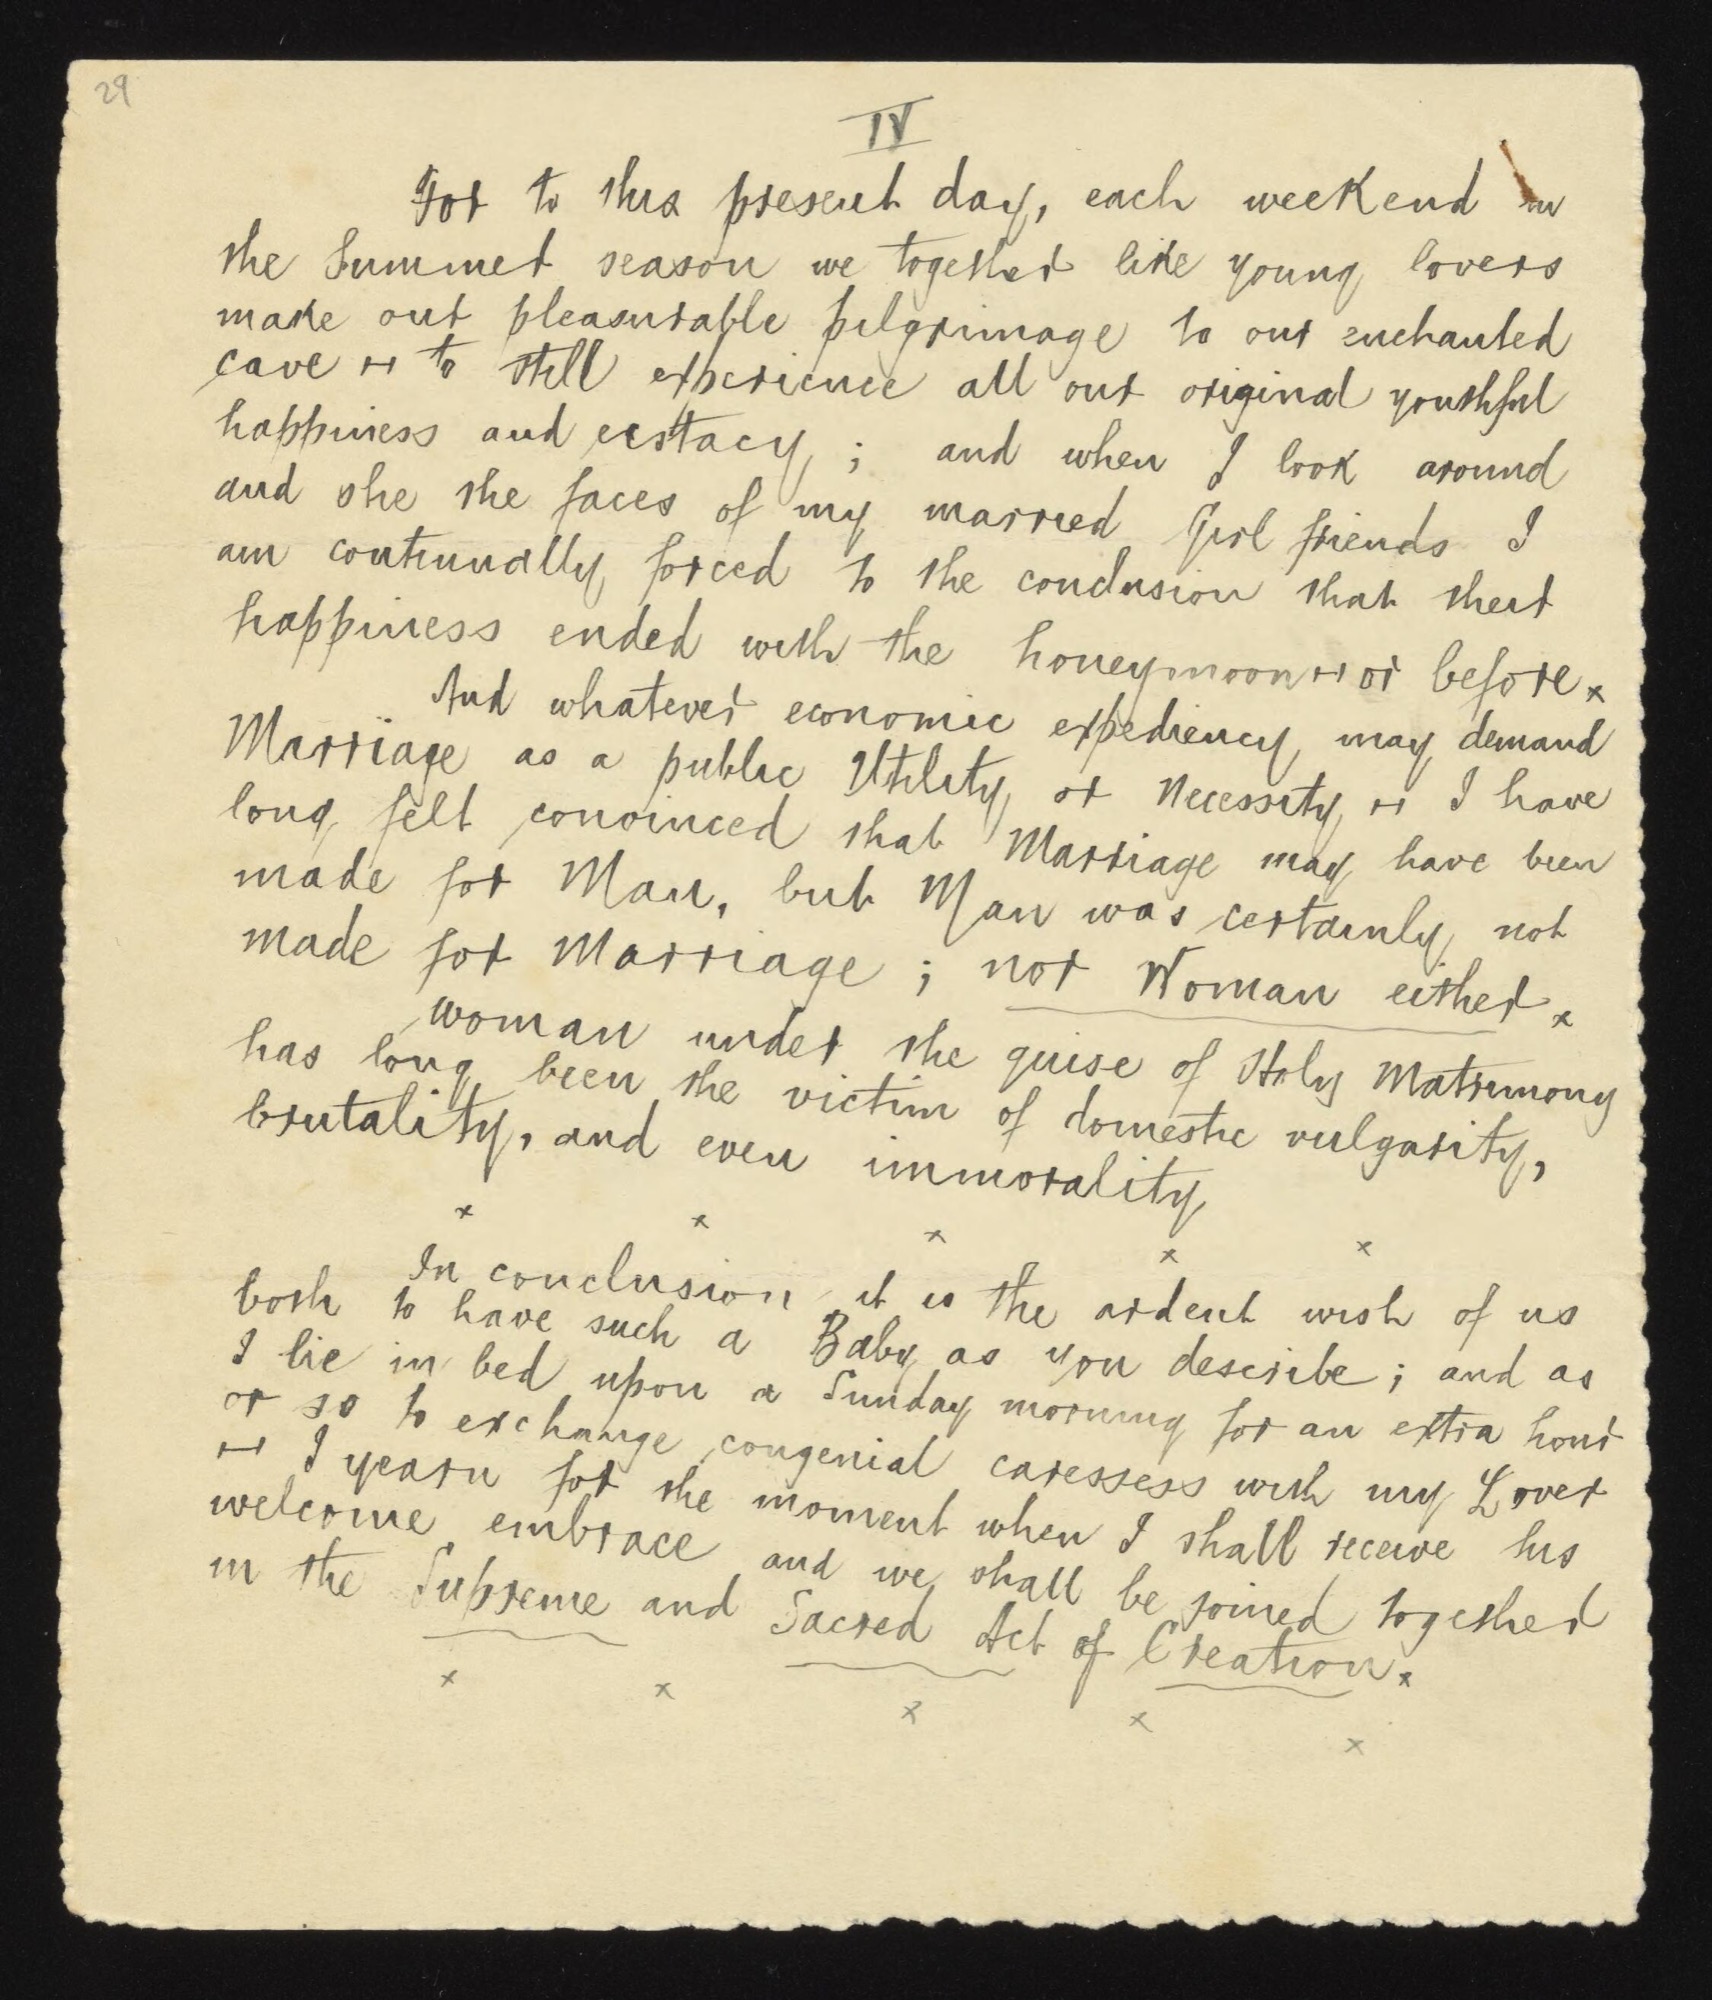 29
IV
For to this present day, each weekend in
the Summer season we together like young lovers
make our pleasurable pilgrimage to our enchanted
cave -- to still experience all our original youthful
happiness and ecstacy ; and when I look around
and she the faces of my married Girl friends I
am continually forced to the conclusion that their
happiness ended with the honeymoon -- or before x
And whatever economic expediency may demand
Marriage as a public Utility or Necessity -- I have
long felt convinced that Marriage may have been
made for Man, but Man was certainly not
made for Marriage ; nor Woman either x
Woman under the guise of Holy Matrimony
has long been the victim of domestic vulgarity,
brutality, and even immorality
x x x x x
In conclusion it is the ardent wish of us
both to have such a Baby as you describe ; and as
I lie in bed upon a Sunday morning for an extra hour
or so to exchange congenial caressess with my Lover
-- I yearn for the moment when I shall receive his
welcome embrace and we shall be joined together
in the Supreme and Sacred Act of Creation x
x x x x x